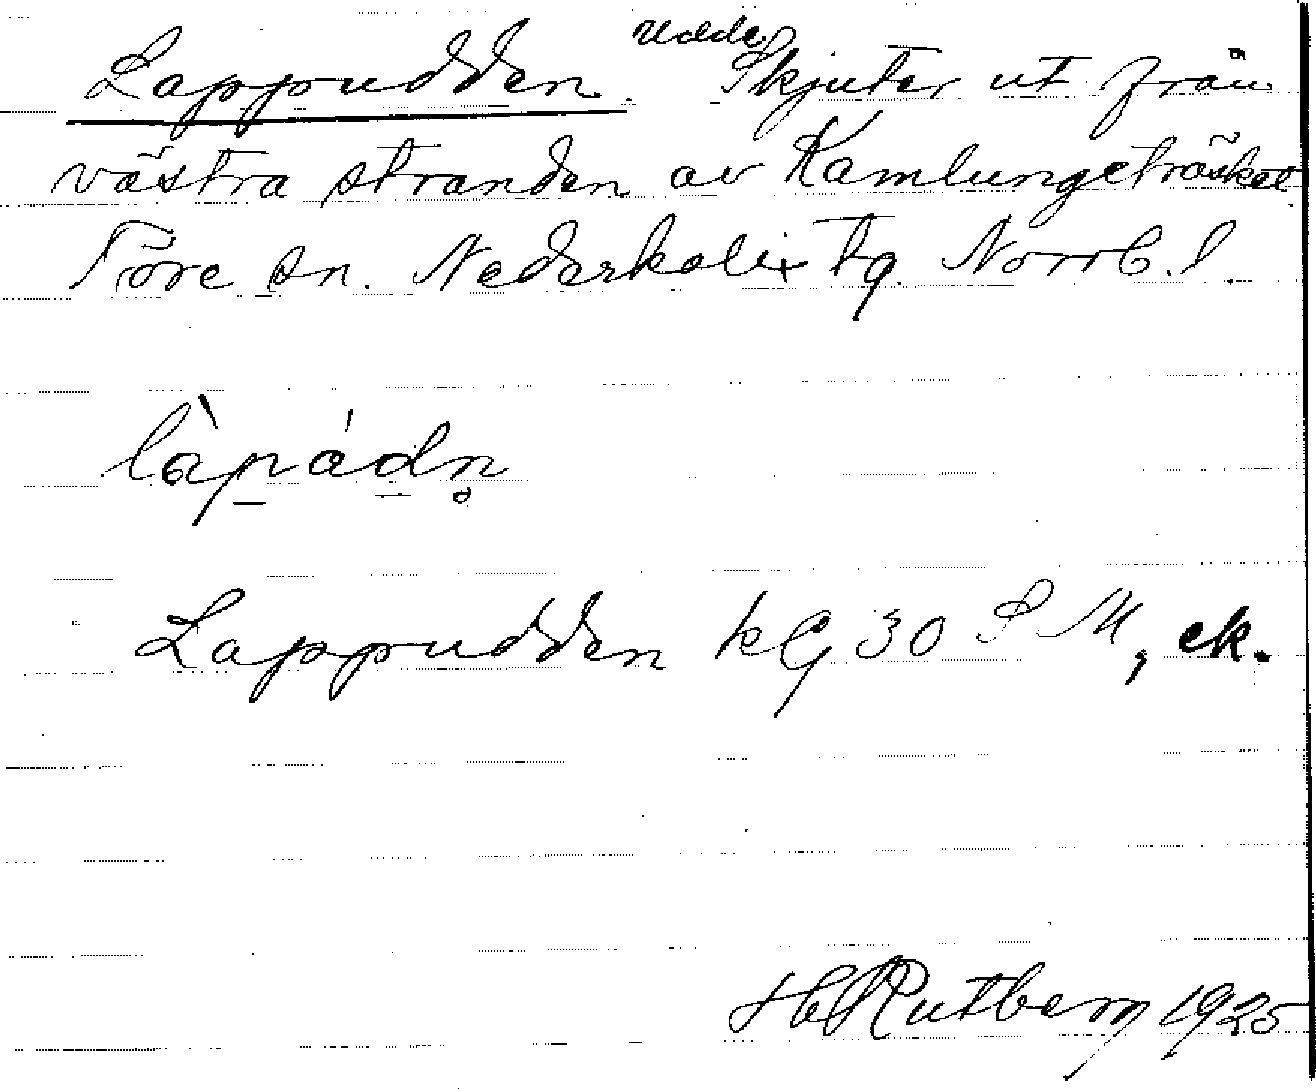 Lappudden. Udde. Skjuter ut från
västra stranden av Kamlungeträsket
Töre sn. Nederkalix tg. Norrb. l.
làpádn̥
Lappudden kG 30 S M, ek.
Rutberg 1925